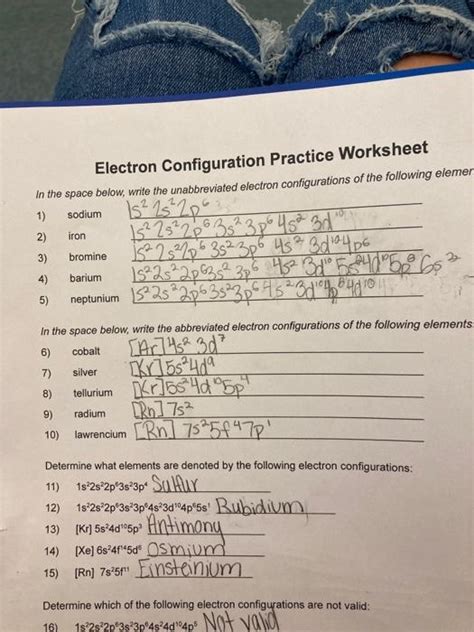 Electron Configuration Practice Worksheet
In the space below, write the unabbreviated electron configurations of the following elemen
1) sodium 1s² 2s² 2p⁶
2) iron 1s² 2s² 2p⁶ 3s² 3p⁶ 4s² 3d¹⁰
3) bromine 1s² 2s² 2p⁶ 3s² 3p⁶ 4s² 3d¹⁰ 4p⁶
4) barium 1s² 2s² 2p⁶ 3s² 3p⁶ 4s² 3d¹⁰ 5s² 4d¹⁰ 5p⁶ 6s²
5) neptunium 1s² 2s² 2p⁶ 3s² 3p⁶ 4s² 3d¹⁰ 4p⁶ 4d¹⁰
In the space below, write the abbreviated electron configurations of the following elements:
6) cobalt [Ar] 4s² 3d⁷
7) silver [Kr] 5s² 4d⁹
8) tellurium [Kr] 5s² 4d¹⁰ 5p⁴
9) radium [Rn] 7s²
10) lawrencium [Rn] 7s² 5f¹⁴ 7p¹
Determine what elements are denoted by the following electron configurations:
11) 1s²2s²2p⁶3s²3p⁴ Sulfur
12) 1s²2s²2p⁶3s²3p⁶4s²3d¹⁰4p⁶5s¹ Rubidium
13) [Kr] 5s²4d¹⁰5p³ Antimony
14) [Xe] 6s²4f¹⁴5d⁶ Osmium
15) [Rn] 7s²5f¹¹ Einsteinium
Determine which of the following electron configurations are not valid:
16) 1s²2s²2p⁶3s²3p⁶4s²4d¹⁰4p⁵ Not valid